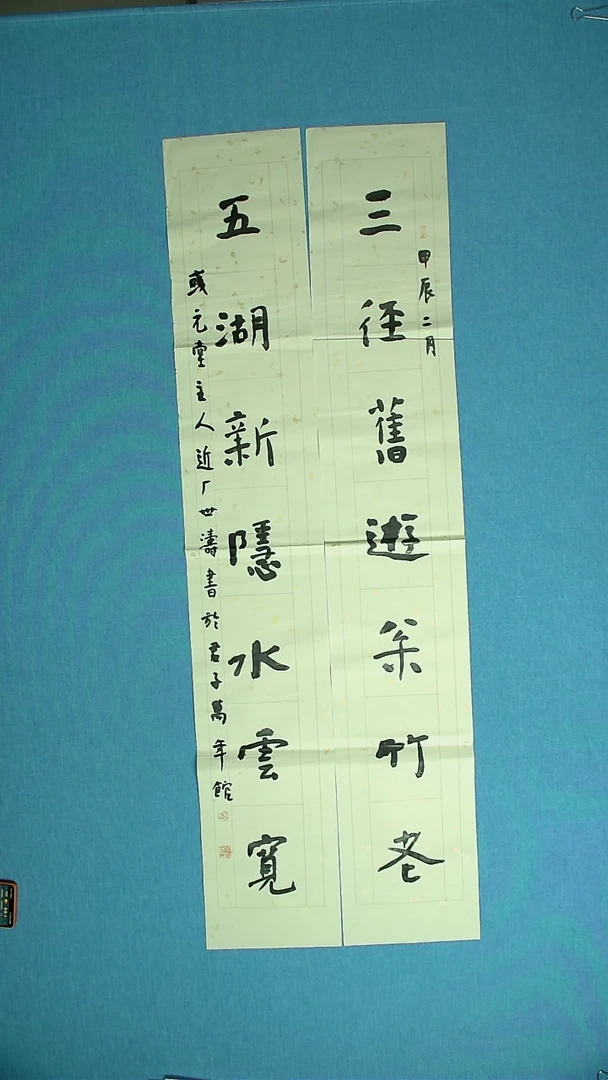 甲辰二月
三徑舊遊枀竹老
五湖新隱水雲寬
彧元堂主人近厂世濤書於君子萬年館